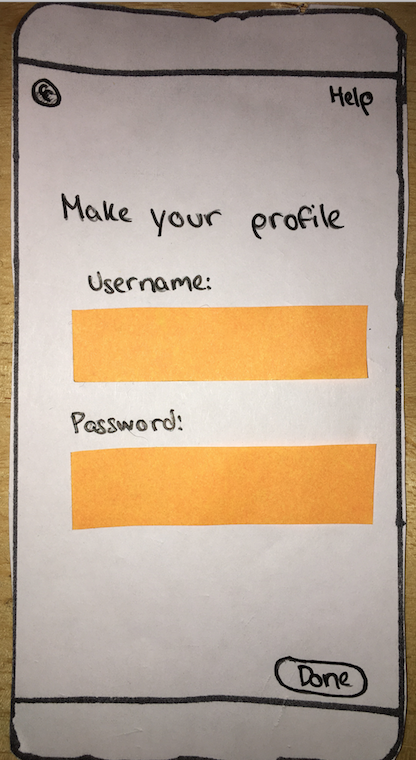 Help
Make your profile
Username:
Password:
Done